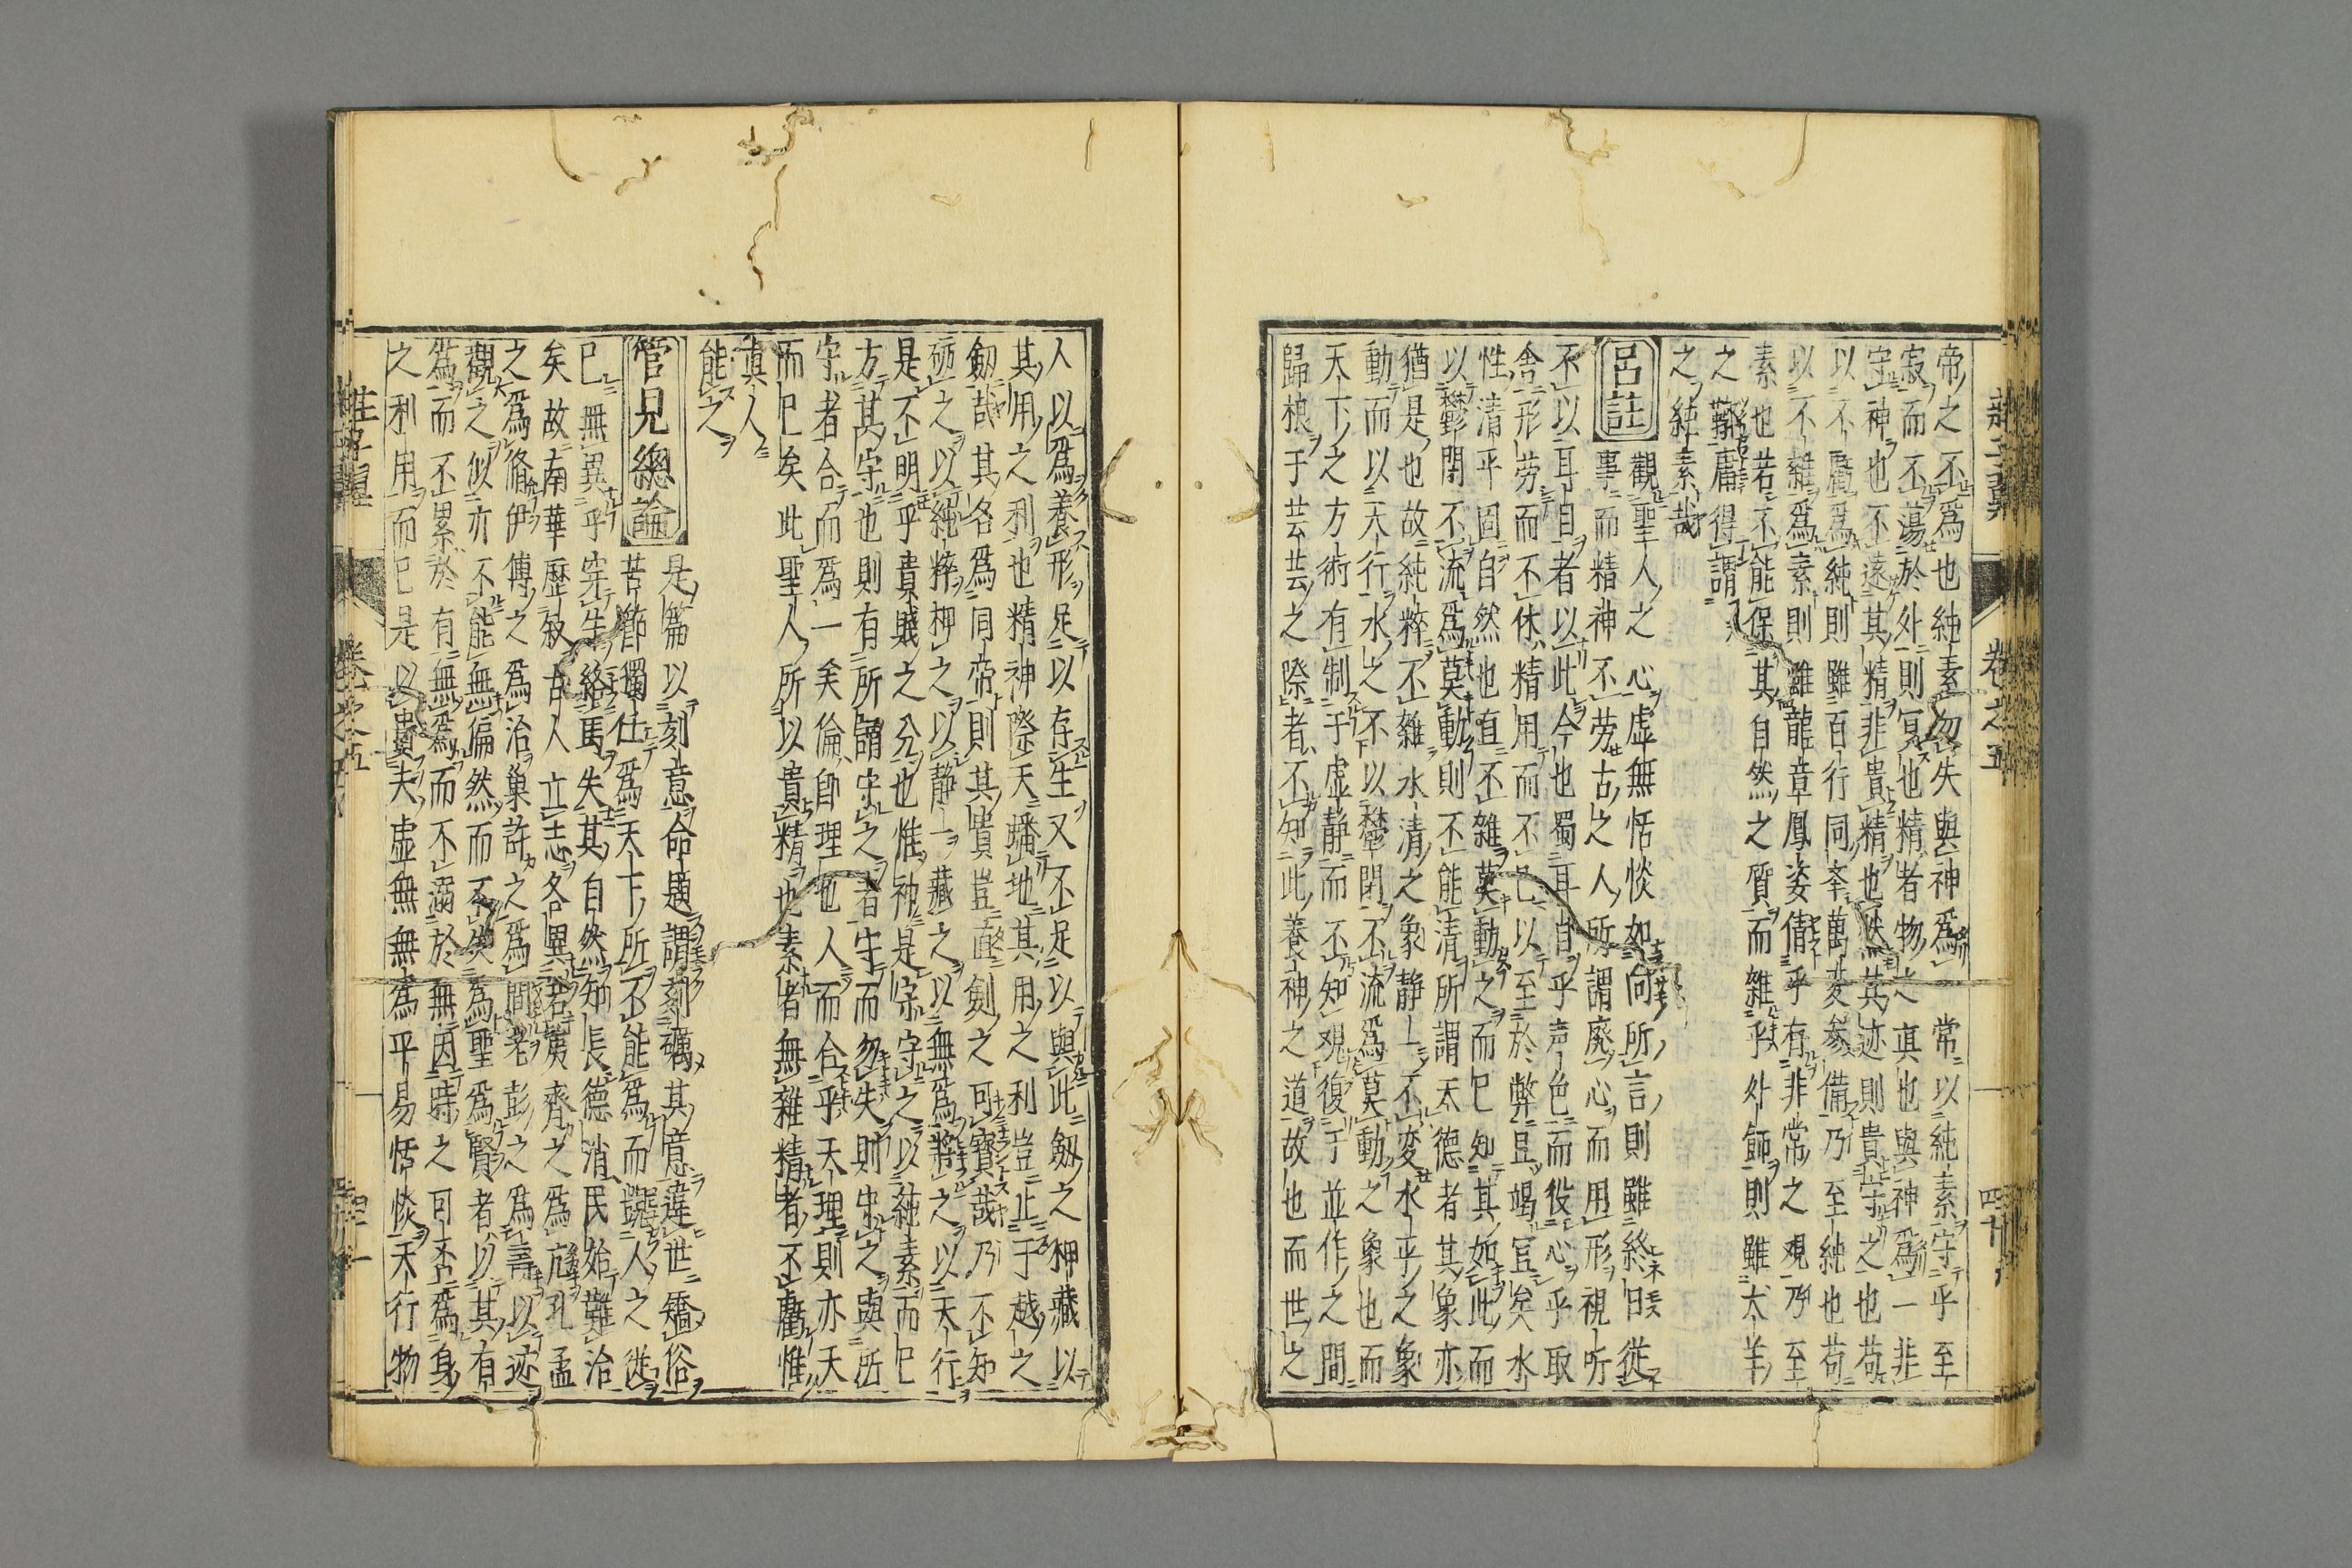 帝之不爲也純素勿失與神爲一常以純素守乎至
寂而不蕩於外則冥也精者物之真也與神爲一非
守神也不遠其精非貴精也然其迹則貴守之也苟
以不虧爲純則雖百行同舉萬変参備乃至純也苟
以不雜爲素則雖龍章鳳姿倩乎有非常之觀乃至
素也若不能保其自然之質而雜乎外飾則雖犬羊
之鞹庸得謂
之純素哉
呂註 觀聖人之心虚無恬惔如向所言則雖終日從
事而精神不劳古之人所謂廢心而用形視听
不以耳目者以此今也蜀耳目乎声色而役心乎取
舎形劳而不休精用而不已以至於弊且竭宜矣水
性清平固自然也直不雜莫動之而已知其如此而
以鬱閉不流爲莫動則不能清所謂天德者其象亦
猶是也故純粹不雜水清之象静一不変水平之象
動而以天行水之不以鬱閉不流爲莫動之象也而
天下之方術有制于虚静而不知観復于並作之間
歸根于芸芸之際者不知此養神之道故也而世之
莊子翼 卷之五 四十
人以爲養形足以存生又不足以與此劔之柙藏以
其用之利也精神際天蟠地其用之利豈止于越之
劔哉其名爲同帝則其貴豈啻剣之可寳哉乃不知
砺之以純粹柙之以静一藏之以無爲將之以天行
是不明乎貴賎之分也惟神是宗守之以純素而已
方其守也則有所謂守之者守而勿失則守之與所
守者合而爲一矣倫卽理也人而合乎天理則亦天
而已矣此聖人所以貴精也素者無雜精者不虧惟
真人
能之
管見總論 是篇以刻意命題謂刻礪其意違世矯俗
苦節獨仕爲天下所不能爲而蹴人之從
已無異乎穿牛絡馬失其自然知長德消民始難治
矣故南華歴敘古人立志各異若夷齊之爲尢孔孟
之爲脩伊傅之爲治巢許之爲間老彭之爲壽以迹
觀之似亦不能無偏然而不失爲聖爲賢者以其有
爲而不累於有無爲而不溺於無因時之可否爲身
之利用而已是以貴夫虚無無為平易恬惔天行物
莊子翼 卷之五 四十一